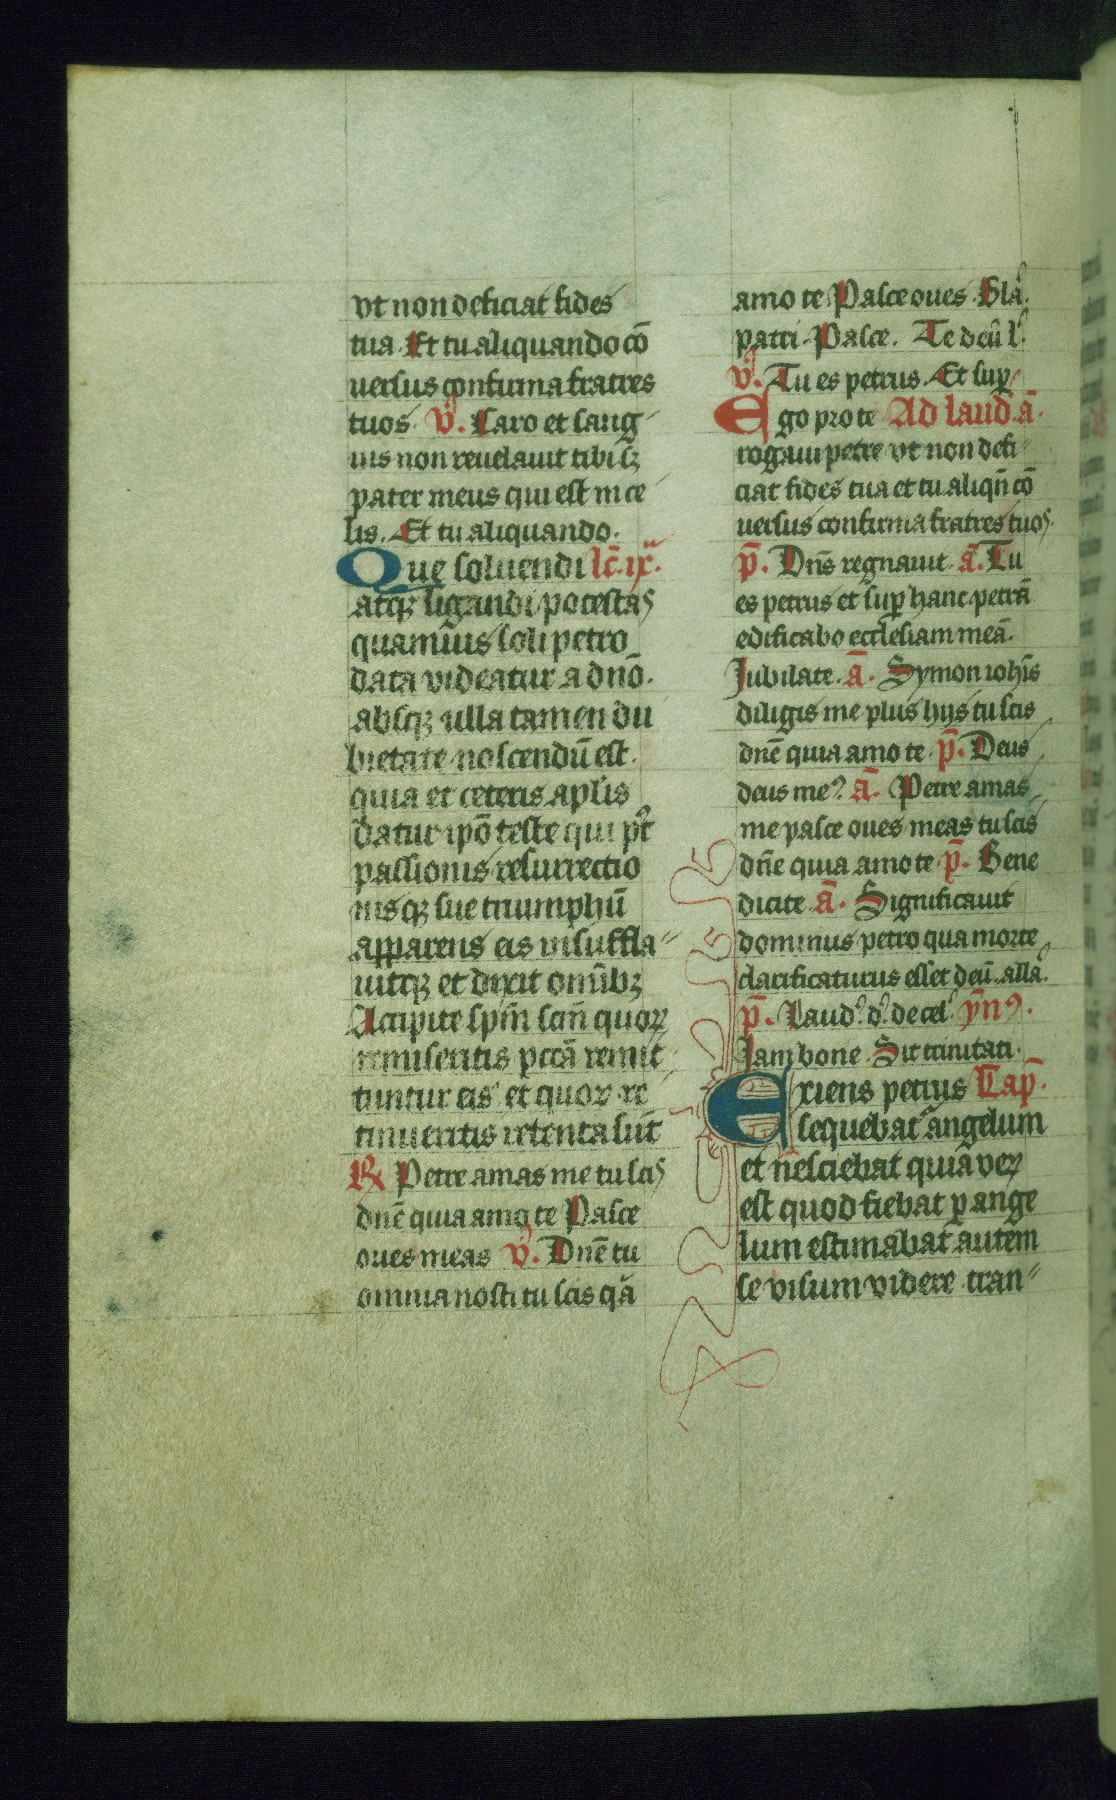 vt non deficiat fides
tua Et tu aliquando cō
uersus confirma fratres
tuos v̉. Caro et sang
uis non reuelauit tibi sꝫ
pater meus qui est in ce
lis. Et tu aliquando.
Que soluendi lc̄. ix.
atqꝫ ligandi potestas
quamuis soli petro
data videatur a dnō.
absqꝫ ulla tamen du
bietate noscendū est.
quia et ceteris aplis
datur ipō teste qui pt
passionis resurrectio
nisqꝫ sue triumphū
apparens eis insuffla〃
uitqꝫ et dixit omībꝫ
Accipite spm̄ scm̄ quoꝝ
remiseritis pccā remit
tuntur eis et quoꝝ re
tinueritis retenta sūt
℟ Petre amas me tu scis
dnē quia amo te Pasce
oues meas v̉. Dnē tu
omnia nosti tu scis qa
amo te Pasce oues Gla.
patri. Pasce. Te deū l.
v̉. Tu es petrus. Et sup
Ego pro te Ad laud. ā.
rogaui petre vt non defi〃
ciat fides tua et tu aliqn̄ cō
uersus confirma fratres tuos.
p̄. Dns̄ regnauit. ā. Tu
es petrus et sup hanc petrā
edificabo ecclesiam meā.
Jubilate. ā. Symon iohis̄
diligis me plus hijs tu scis
dnē quia amo te. p̄. Deus
deus meꝰ ā. Petre amas
me pasce oues meas tu scis
dnē quia amo te p̄. Bene
dicite ā. Significauit
dominus petro qua morte
clarificaturus esset deū. alla.
p̄. Laud. d. de cel. ẏnꝰ.
Jam bone. Sit trinitati.
Exiens petrus Cap̄.
sequebat angelum
et nesciebat quia veꝝ
est quod fiebat ꝑ ange
lum estimabat autem
se visum videre tran〃